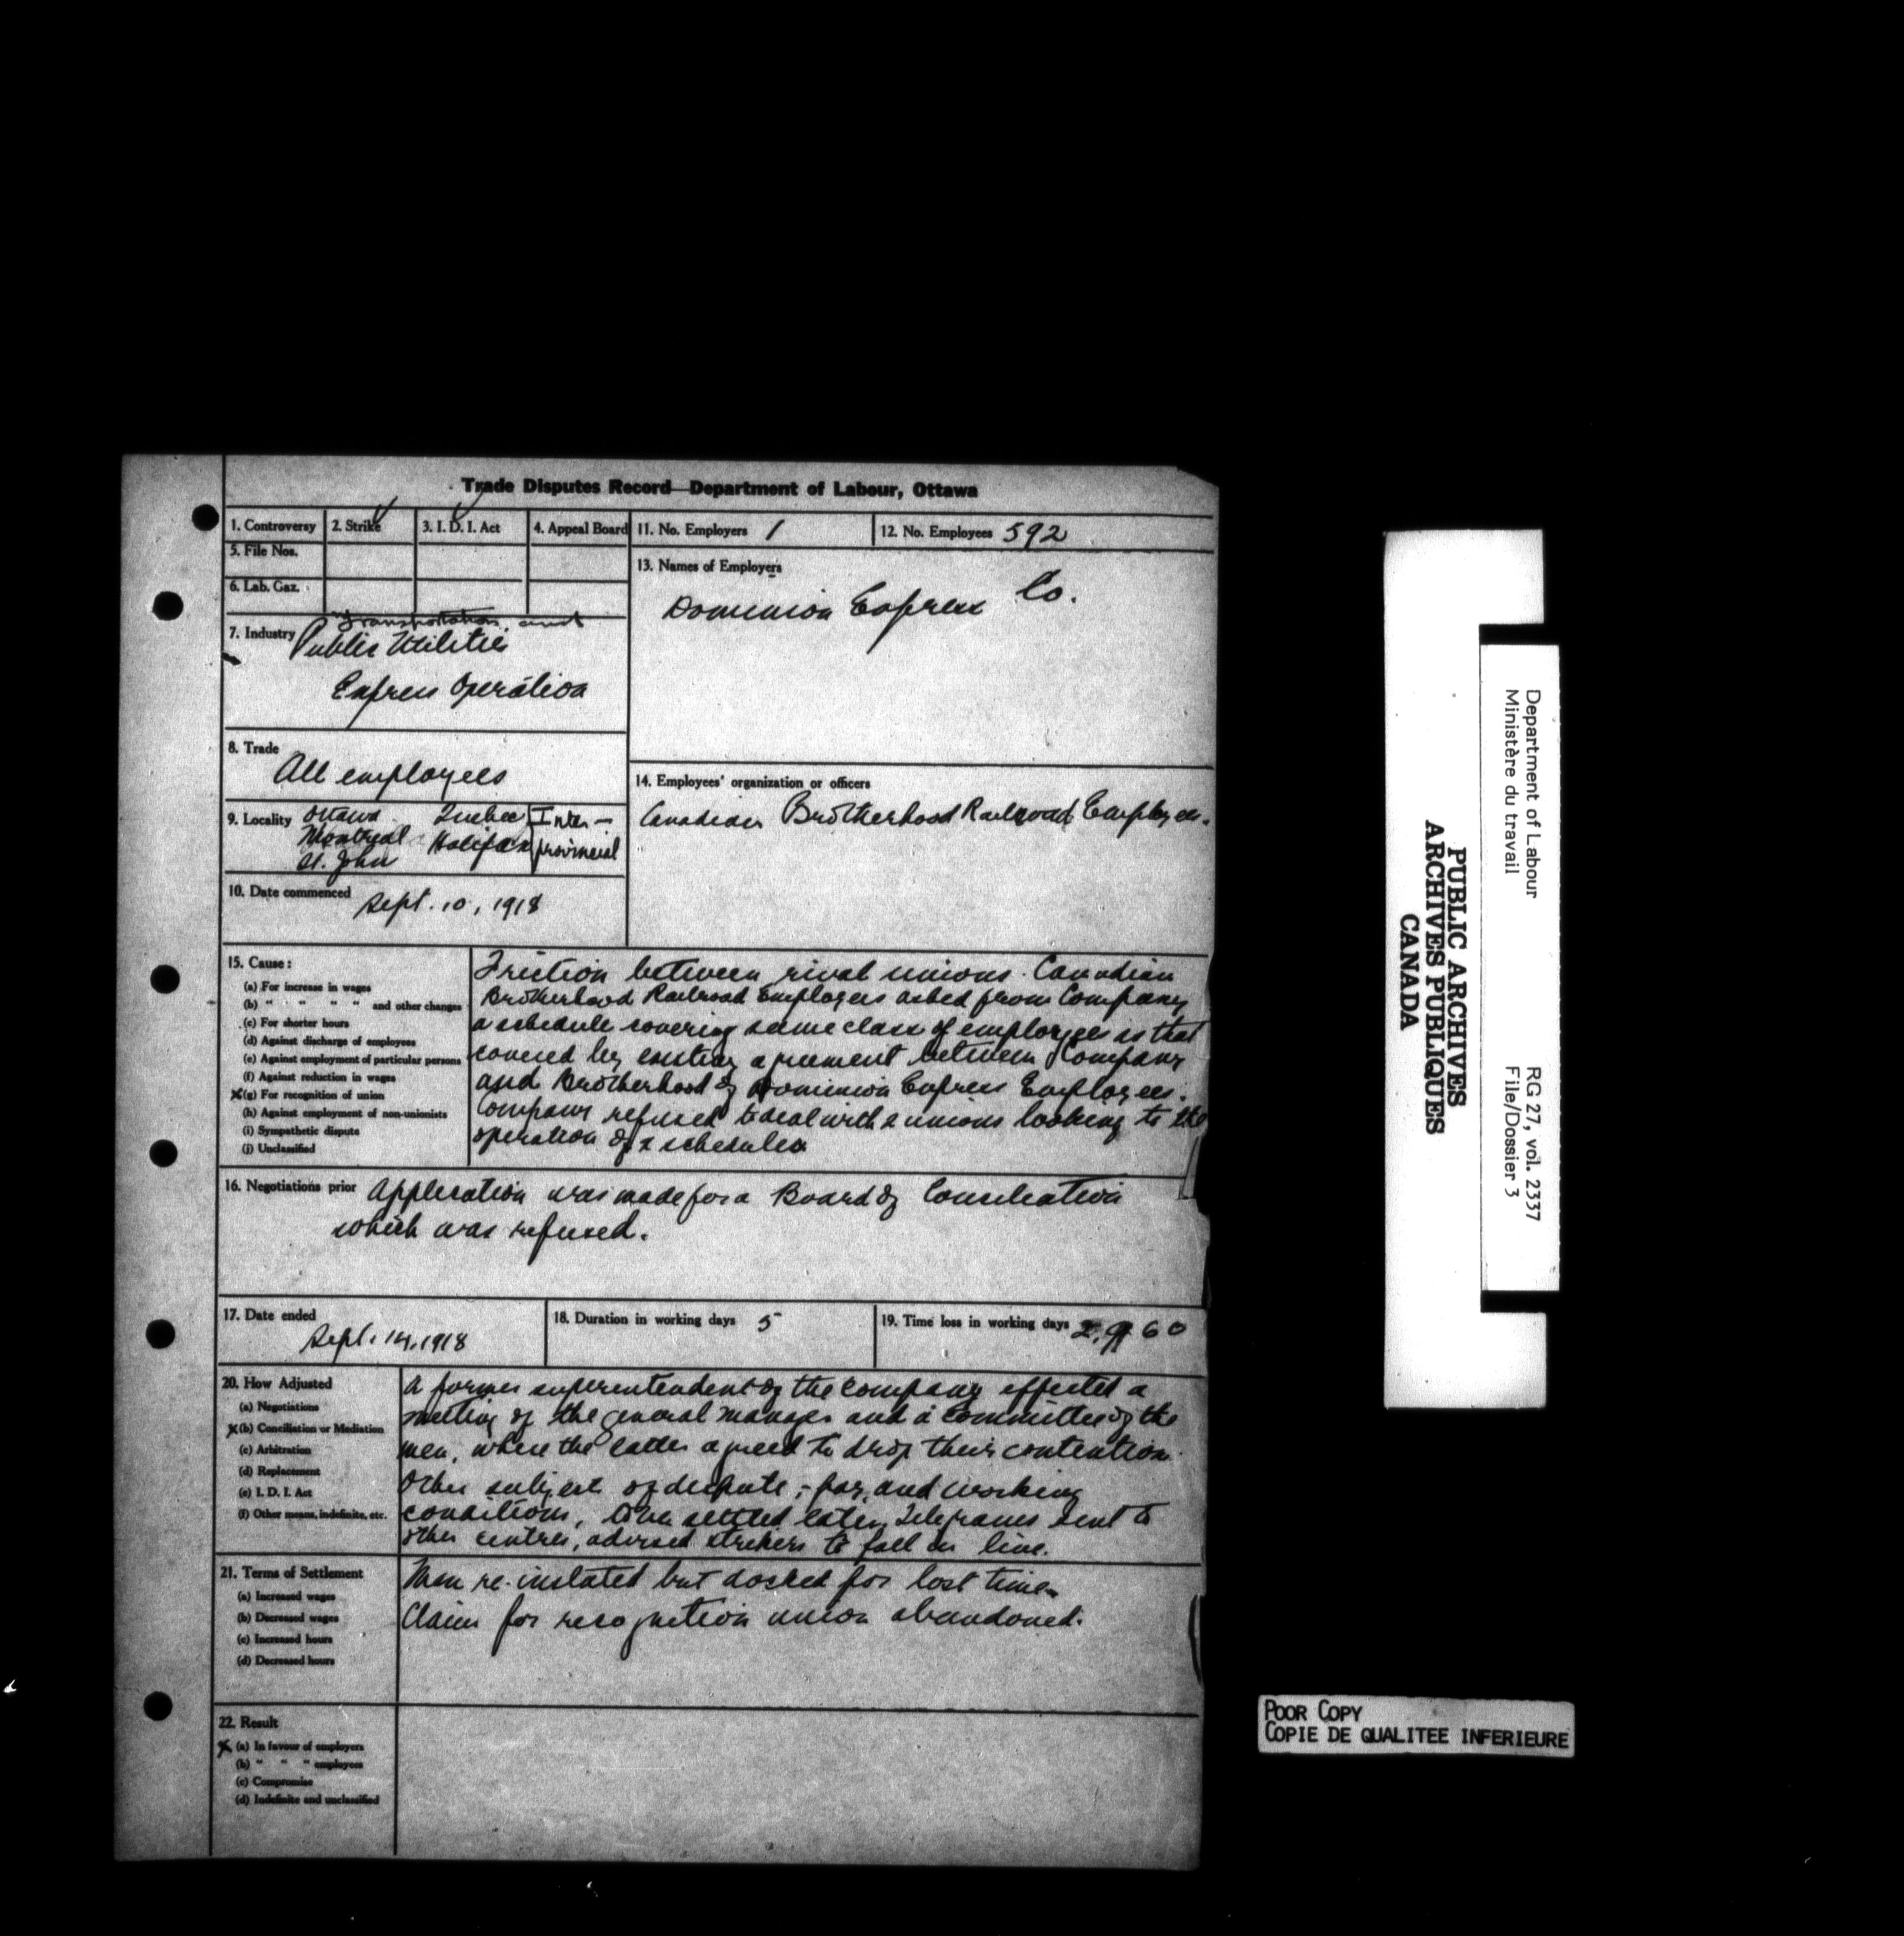 Trade Disputes Record—Department of Labour, Ottawa
1. Controversy
2. Strike ✓
3. I. D. I. Act ✓
4. Appeal Board
5. File Nos.
6. Lab. Gaz.
7. Industry Transportation and
Public Utilities
Express Operation
8. Trade
All employees
9. Locality Ottawa Quebec Inter-
Montreal Halifax provincial
St. John
10. Date commenced Sept. 10, 1918
11. No. Employers 1
12. No. Employees 592
13. Names of Employers
Dominion Express Co.
14. Employees' organization or officers
Canadian Brotherhood Railroad Employees.
15. Cause:
(a) For increase in wages
(b) " " " " and other changes
(c) For shorter hours
(d) Against discharge of employees
(e) Against employment of particular persons
(f) Against reduction in wages
x(g) For recognition of union
(h) Against employment of non-unionists
(i) Sympathetic dispute
(j) Unclassified
Friction between rival unions. Canadian
Brotherhood Railroad Employees asked from Company
a schedule covering same class of employees as that
covered by existing agreement between Company
and Brotherhood of Dominion Express Employees.
Company refused to deal with 2 unions looking to the
operation of 2 schedules
16. Negotiations prior Application was made for a Board of Conciliation
which was refused.
17. Date ended
Sept. 14, 1918
18. Duration in working days 5
19. Time loss in working days 2,960
20. How Adjusted
(a) Negotiations
x(b) Conciliation or Mediation
(c) Arbitration
(d) Replacement
(e) I. D. I. Act
(f) Other means, indefinite, etc.
A former superintendent of the Company effected a
meeting of the general manager and a Committee of the
men, where the latter agreed to drop their contention.
Other subject of dispute,- pay and working
conditions, settled later. Telegrams sent to
other centres, advised strikers to fall in line.
21. Terms of Settlement
(a) Increased wages
(b) Decreased wages
(c) Increased hours
(d) Decreased hours
Men re-instated but docked for lost time.
Claim for recognition union abandoned.
22. Result
x (a) In favour of employers
(b) " " " employees
(c) Compromise
(d) Indefinite and unclassified
Department of Labour
Ministère du travail
RG 27, vol. 2337
File/Dossier 3
PUBLIC ARCHIVES
ARCHIVES PUBLIQUES
CANADA
POOR COPY
COPIE DE QUALITEE INFERIEURE